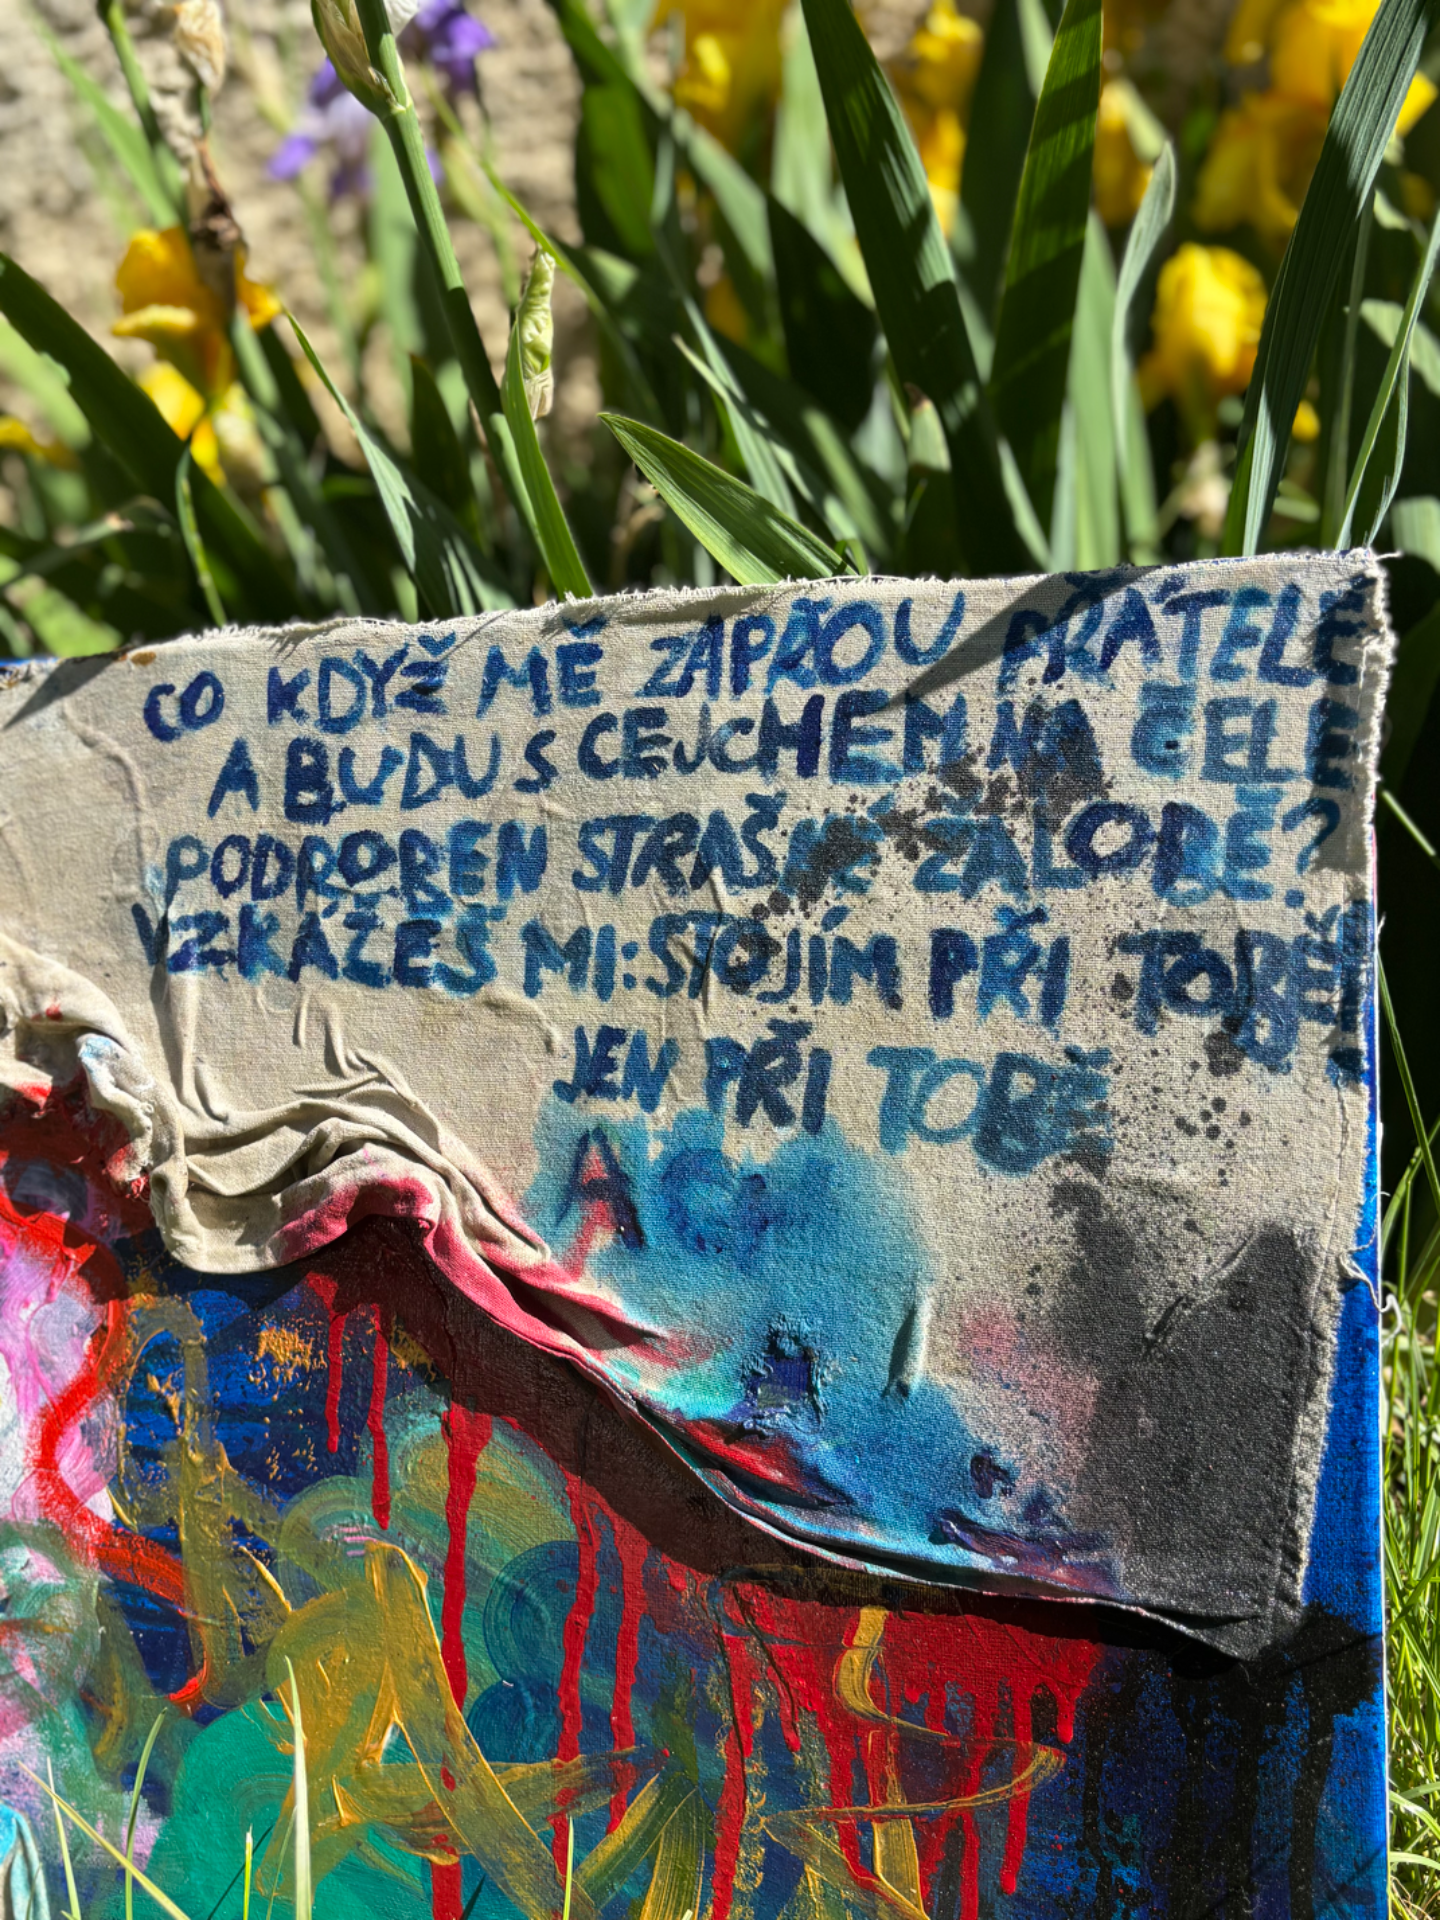 CO KDYŽ MĚ ZAPŘOU PŘÁTELÉ
A BUDU S CEJCHEM NA ČELE
PODROBEN STRAŠNÉ ŽALOBĚ?
VZKÁŽEŠ MI: STOJÍM PŘI TOBĚ
JEN PŘI TOBĚ